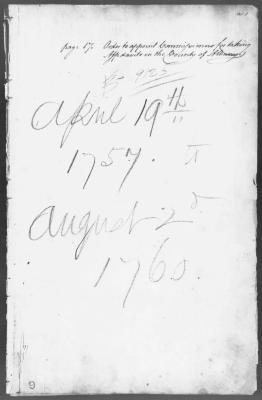 page 17. Order to appoint Commissioners for taking
Affidavits in the County of
9123
April 19th
1757.
August 2d
1760.
9